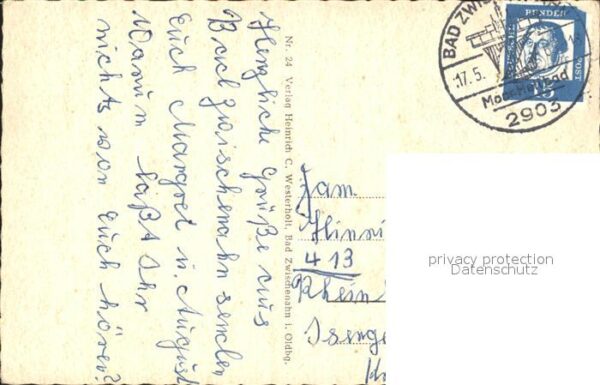 Herzliche Grüße aus
Bad Zwischenahn senden
Euch Margret u. August
Warum laßt Ihr
nichts von Euch hören?
Nr. 24 Verlag Heinrich C. Westerholt, Bad Zwischenahn i. Oldbg.
BAD ZWISCHENAHN
17.5.
Moorheilbad
2903
DEUTSCHE
BUNDES
POST
15
Fam
413
Rhein
Isenge
privacy protection
Datenschutz